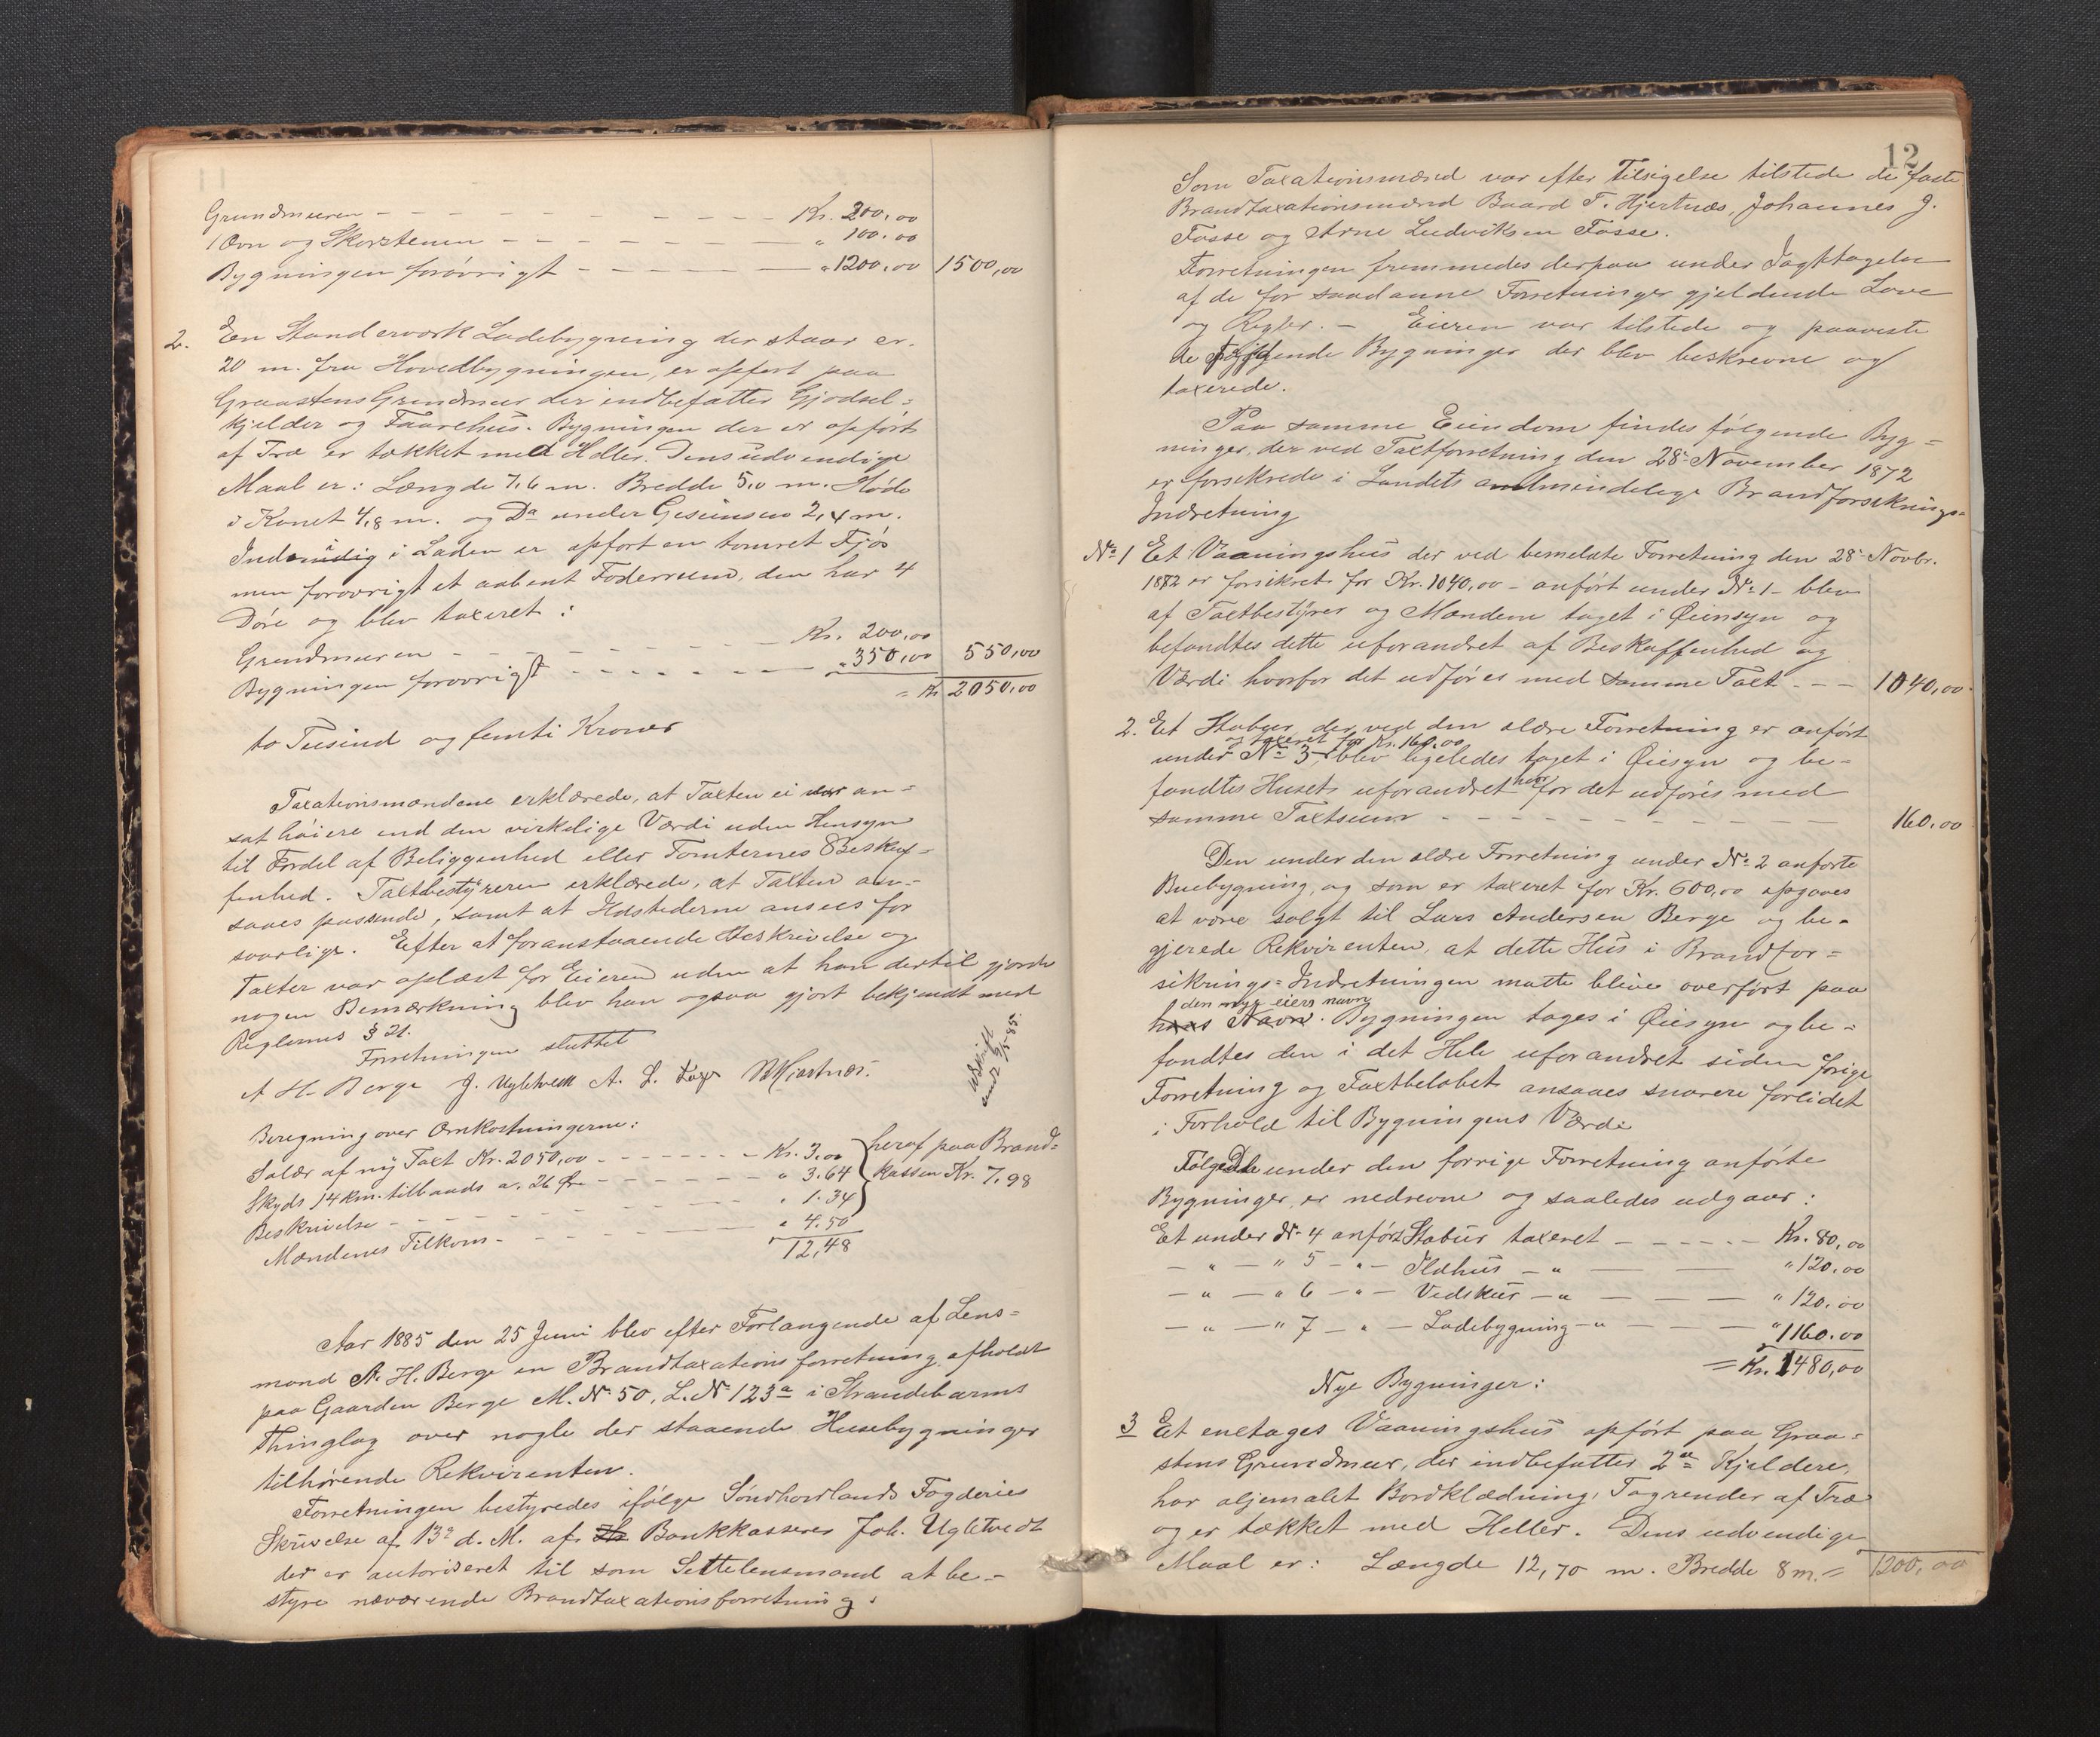 Grundmuren - - - - - - - - - - Kr. 200,00
1 Ovn og Skorstenen - - - - - - - " 100.00
Bygningen forøvrigt - - - - - - " 1200,00 1500,00
2. En Standerværk Ladebygning der staar ca.
20 m. fra Hovedbygningen, er opført paa
Graastens Grundmur der indbefatter Gjødsel-
kjelder og Faarehus. Bygningen der er opført
af Træ er tækket med Heller. Dens udvendige
Maal er: Længde 7,6 m. Bredde 5,0 m. Høide
i Rønet 4,8 m. og Do under Gesimsen 2,4 m.
Indvendig i Laden er opført en tømret Fjøs
men forøvrigt et aabent Foderrum, den har 4
Døre og blev taxeret:
Grundmuren - - - - - - - Kr. 200,00
Bygningen forøvrigt - - - - - - " 350,00 550,00
= Kr. 2050,00
to Tusind og femti Kroner
Taxationsmændene erklærede, at Taxten ei var an-
sat høiere end den virkelige Værdi uden Hensyn
til Fordel af Beliggenhed eller Tomternes Beskaf-
fenhed. Taxtbestyreren erklærede, at Taxten an-
saaes passende, samt at Ildstederne ansees for
svarlige. Efter at foranstaaende Beskrivelse og
Taxter var oplæst for Eieren uden at han dertil gjorde
nogen Bemærkning blev han ogsaa gjort bekjendt med
Reglernes § 21.
Forretningen sluttet
A H. Berge J. Ugletvedt A. L. Fosse B Hjertnæs.
Udskrift
sendt
Beregning over Omkostningerne:
Salær af ny Taxt Kr. 2050,00 - - - - - - Kr. 3.00 heraf paa Brand-
Skyds 14 km. tillands a. 26 Øre - - - - - " 3.64 kassen Kr. 7,98
Beskrivelse - - - - - - - " 1.34
Mændenes Tilkom - - - - - - " 4.50
12,48
Aar 1885 den 25 Juni blev efter Forlangende af Lens-
mand A. H. Berge en Brandtaxationsforretning afholdt
paa Gaarden Berge M. No 50, L. No 123a i Strandebarms
Thinglag over nogle der staaende Husebygninger
tilhørende Rekvirenten.
Forretningen bestyredes ifølge Søndhordlands Fogderies
Skrivelse af 13de d. M. af Bankkasserer Joh. Ugletvedt
der er autoriseret til som Settelensmand at be-
styre nærværende Brandtaxationsforretning.
12
Som Taxationsmænd var efter Tilsigelse tilstede de faste
Brandtaxationsmænd Baard T. Hjertnæs, Johannes J.
Fosse og Arne Ludviksen Fosse.
Forretningen fremmedes derpaa under Iagttagelse
af de for saadanne Forretninger gjeldende Love
og Regler. - Eieren var tilstede og paaviste
de følgende Bygninger der blev beskrevne og
taxerede.
Paa samme Eiendom findes følgende Byg-
ninger, der ved Taxtforretning den 28de November 1872
er forsikrede i Landets almindelige Brandforsiknings-
Indretning
No 1 Et Vaaningshus der ved bemeldte Forretning den 28de Novbr.
1872 er forsikret for Kr. 1040,00 - anført under No 1 - blev
af Taxtbestyrer og Mændene taget i Øiensyn og
befandtes dette uforandret af Beskaffenhed og
Værdi hvorfor det udføres med samme Taxt - - - 1040,00
2. Et Stabur der ved den ældre Forretning er anført
og taxeret for Kr. 160.00
under No 3, blev ligeledes taget i Øiesyn og be-
fandtes Huset uforandret hvorfor det udføres med
samme Taxtsum - - - - - - - - - - 160.00
Den under den ældre Forretning under No 2 anførte
Buebygning, og som er taxeret for Kr. 600,00 opgaves
at være solgt til Lars Andersen Berge og be-
gjerede Rekvirenten, at dette Hus i Brandfor-
sikrings-Indretningen matte blive overført paa
den nye eiers navn
hans Navn. Bygningen tages i Øiesyn og be-
fandtes den i det Hele uforandret siden forige
Forretning og Taxtbeløbet ansaaes snarere forlidet
i Forhold til Bygningens Værdi
Følgende under den forrige Forretning anførte
Bygninger, er nedrevne og saaledes udgaar:
Et under No 4 anført Stabur taxeret - - - - - Kr. 80,00
- " - " 5 - " - Ildhus - " - - " 120.00
- " - " 6 - " - Vedskur - " - - - " 120.00
- " - " 7 - " - Ladebygning - " - - - " 1160.00
= Kr. 1480,00
Nye Bygninger:
3 Et enetages Vaaningshus opført paa Graa-
stens Grundmur, der indbefatter 2de Kjeldere,
har oljemalet Bordklædning, Tagrender af Træ
og er tækket med Heller. Dens udvendige
Maal er: Længde 12,70 m. Bredde 8 m. = 1200,00